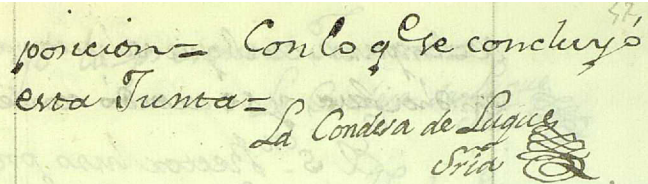 posicion= Con lo q.e se concluyó
esta Junta=
La Condesa de Luque
Sria